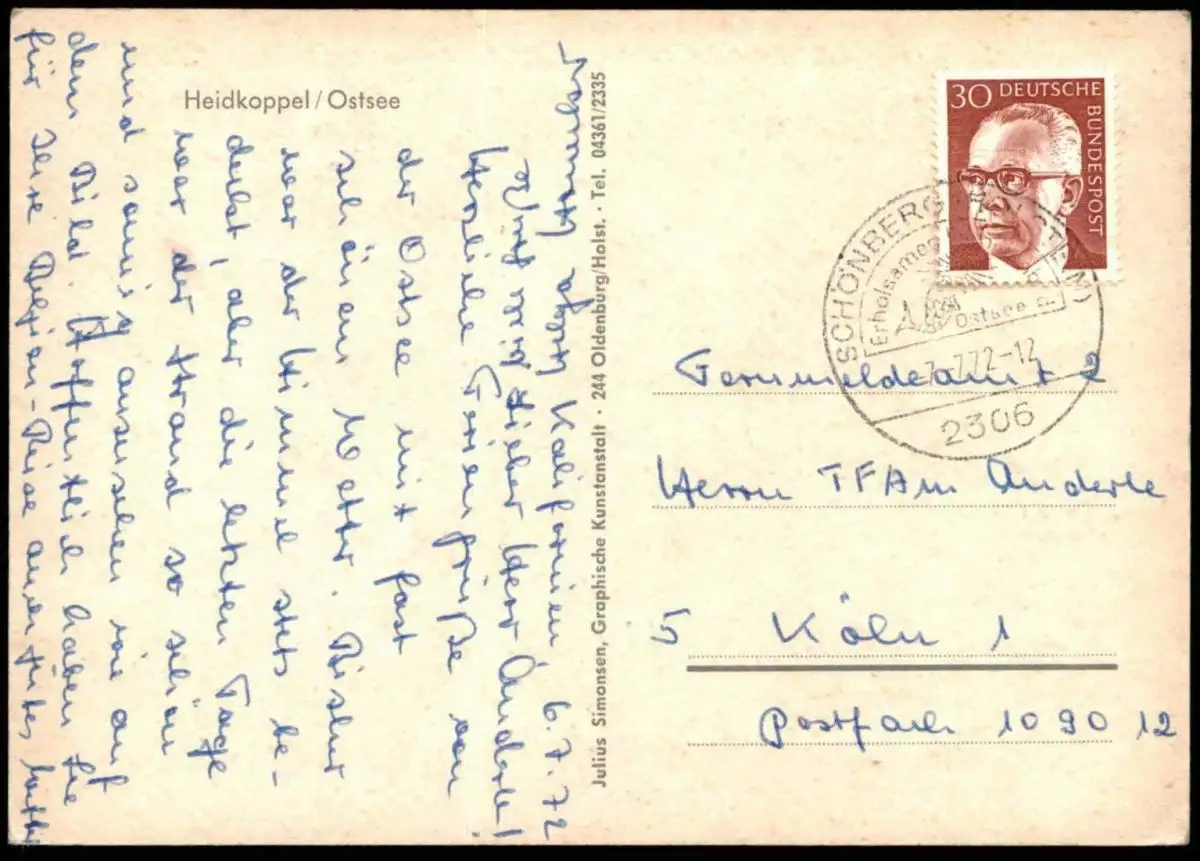 Heidkoppel / Ostsee
Kalifornien 6.7.72
Lieber Herr Anderle!
Herzliche Feriengrüße von
der Ostsee mit fast
schönem Wetter. Bisher
war der Himmel stets be-
deckt, aber die letzten Tage
war der Strand so schön
und sonnig anzusehen wie auf
dem Bild. Hoffentlich haben Sie
für Ihre Belgien-Reise auch gutes
Julius Simonsen, Graphische Kunstanstalt · 244 Oldenburg/Holst. · Tel. 04361/2335
30 DEUTSCHE
BUNDESPOST
SCHÖNBERG
Erholsamer
Ostsee
7.7.72-12
2306
Fernmeldeamt 2
Herrn TFAm Anderle
5 Köln 1
Postfach 10 90 12